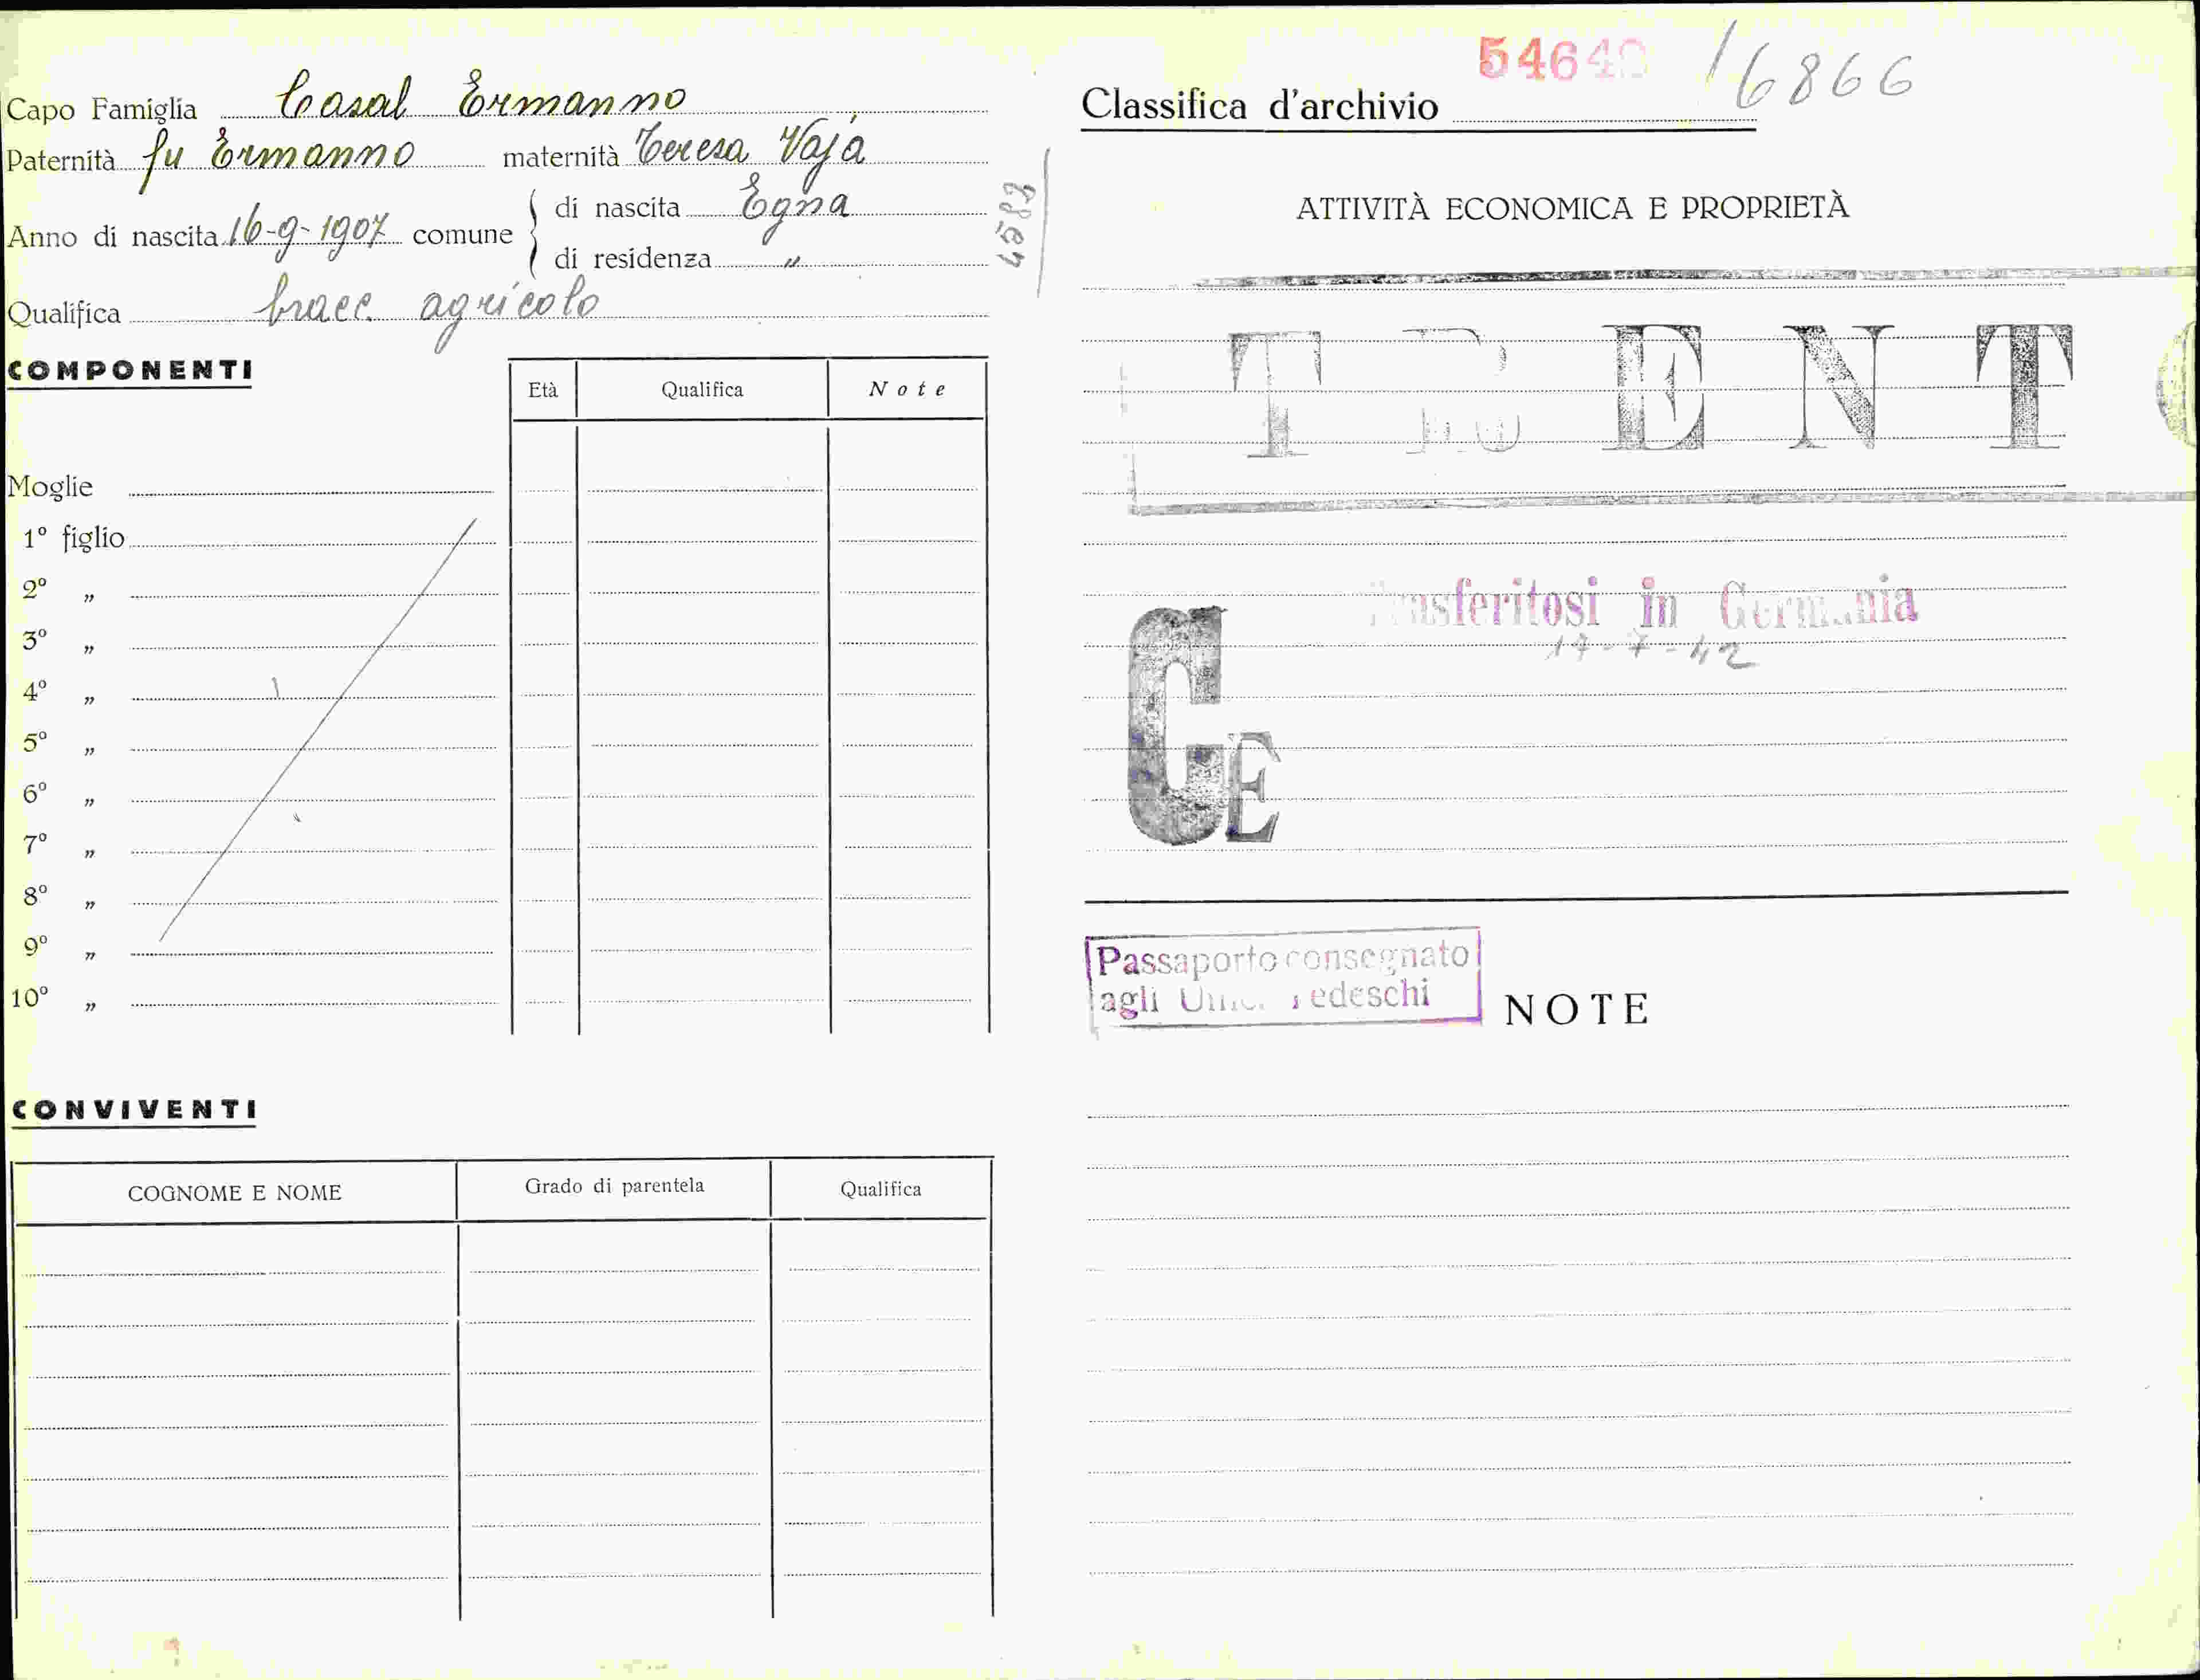 Capo Famiglia Casal Ermanno
Paternità fu Ermanno maternità Teresa Vaja
Anno di nascita 16-9-1907 comune di nascita Egna
di residenza "
Qualifica bracc. agricolo
COMPONENTI
Età Qualifica Note
Moglie
1º figlio
2º "
3º "
4º "
5º "
6º "
7º "
8º "
9º "
10º "
CONVIVENTI
COGNOME E NOME Grado di parentela Qualifica
Classifica d'archivio 16866
ATTIVITÀ ECONOMICA E PROPRIETÀ
TRENTO
Trasferitosi in Germania
17-7-42
GE
Passaporto consegnato
agli Uffici Tedeschi
NOTE